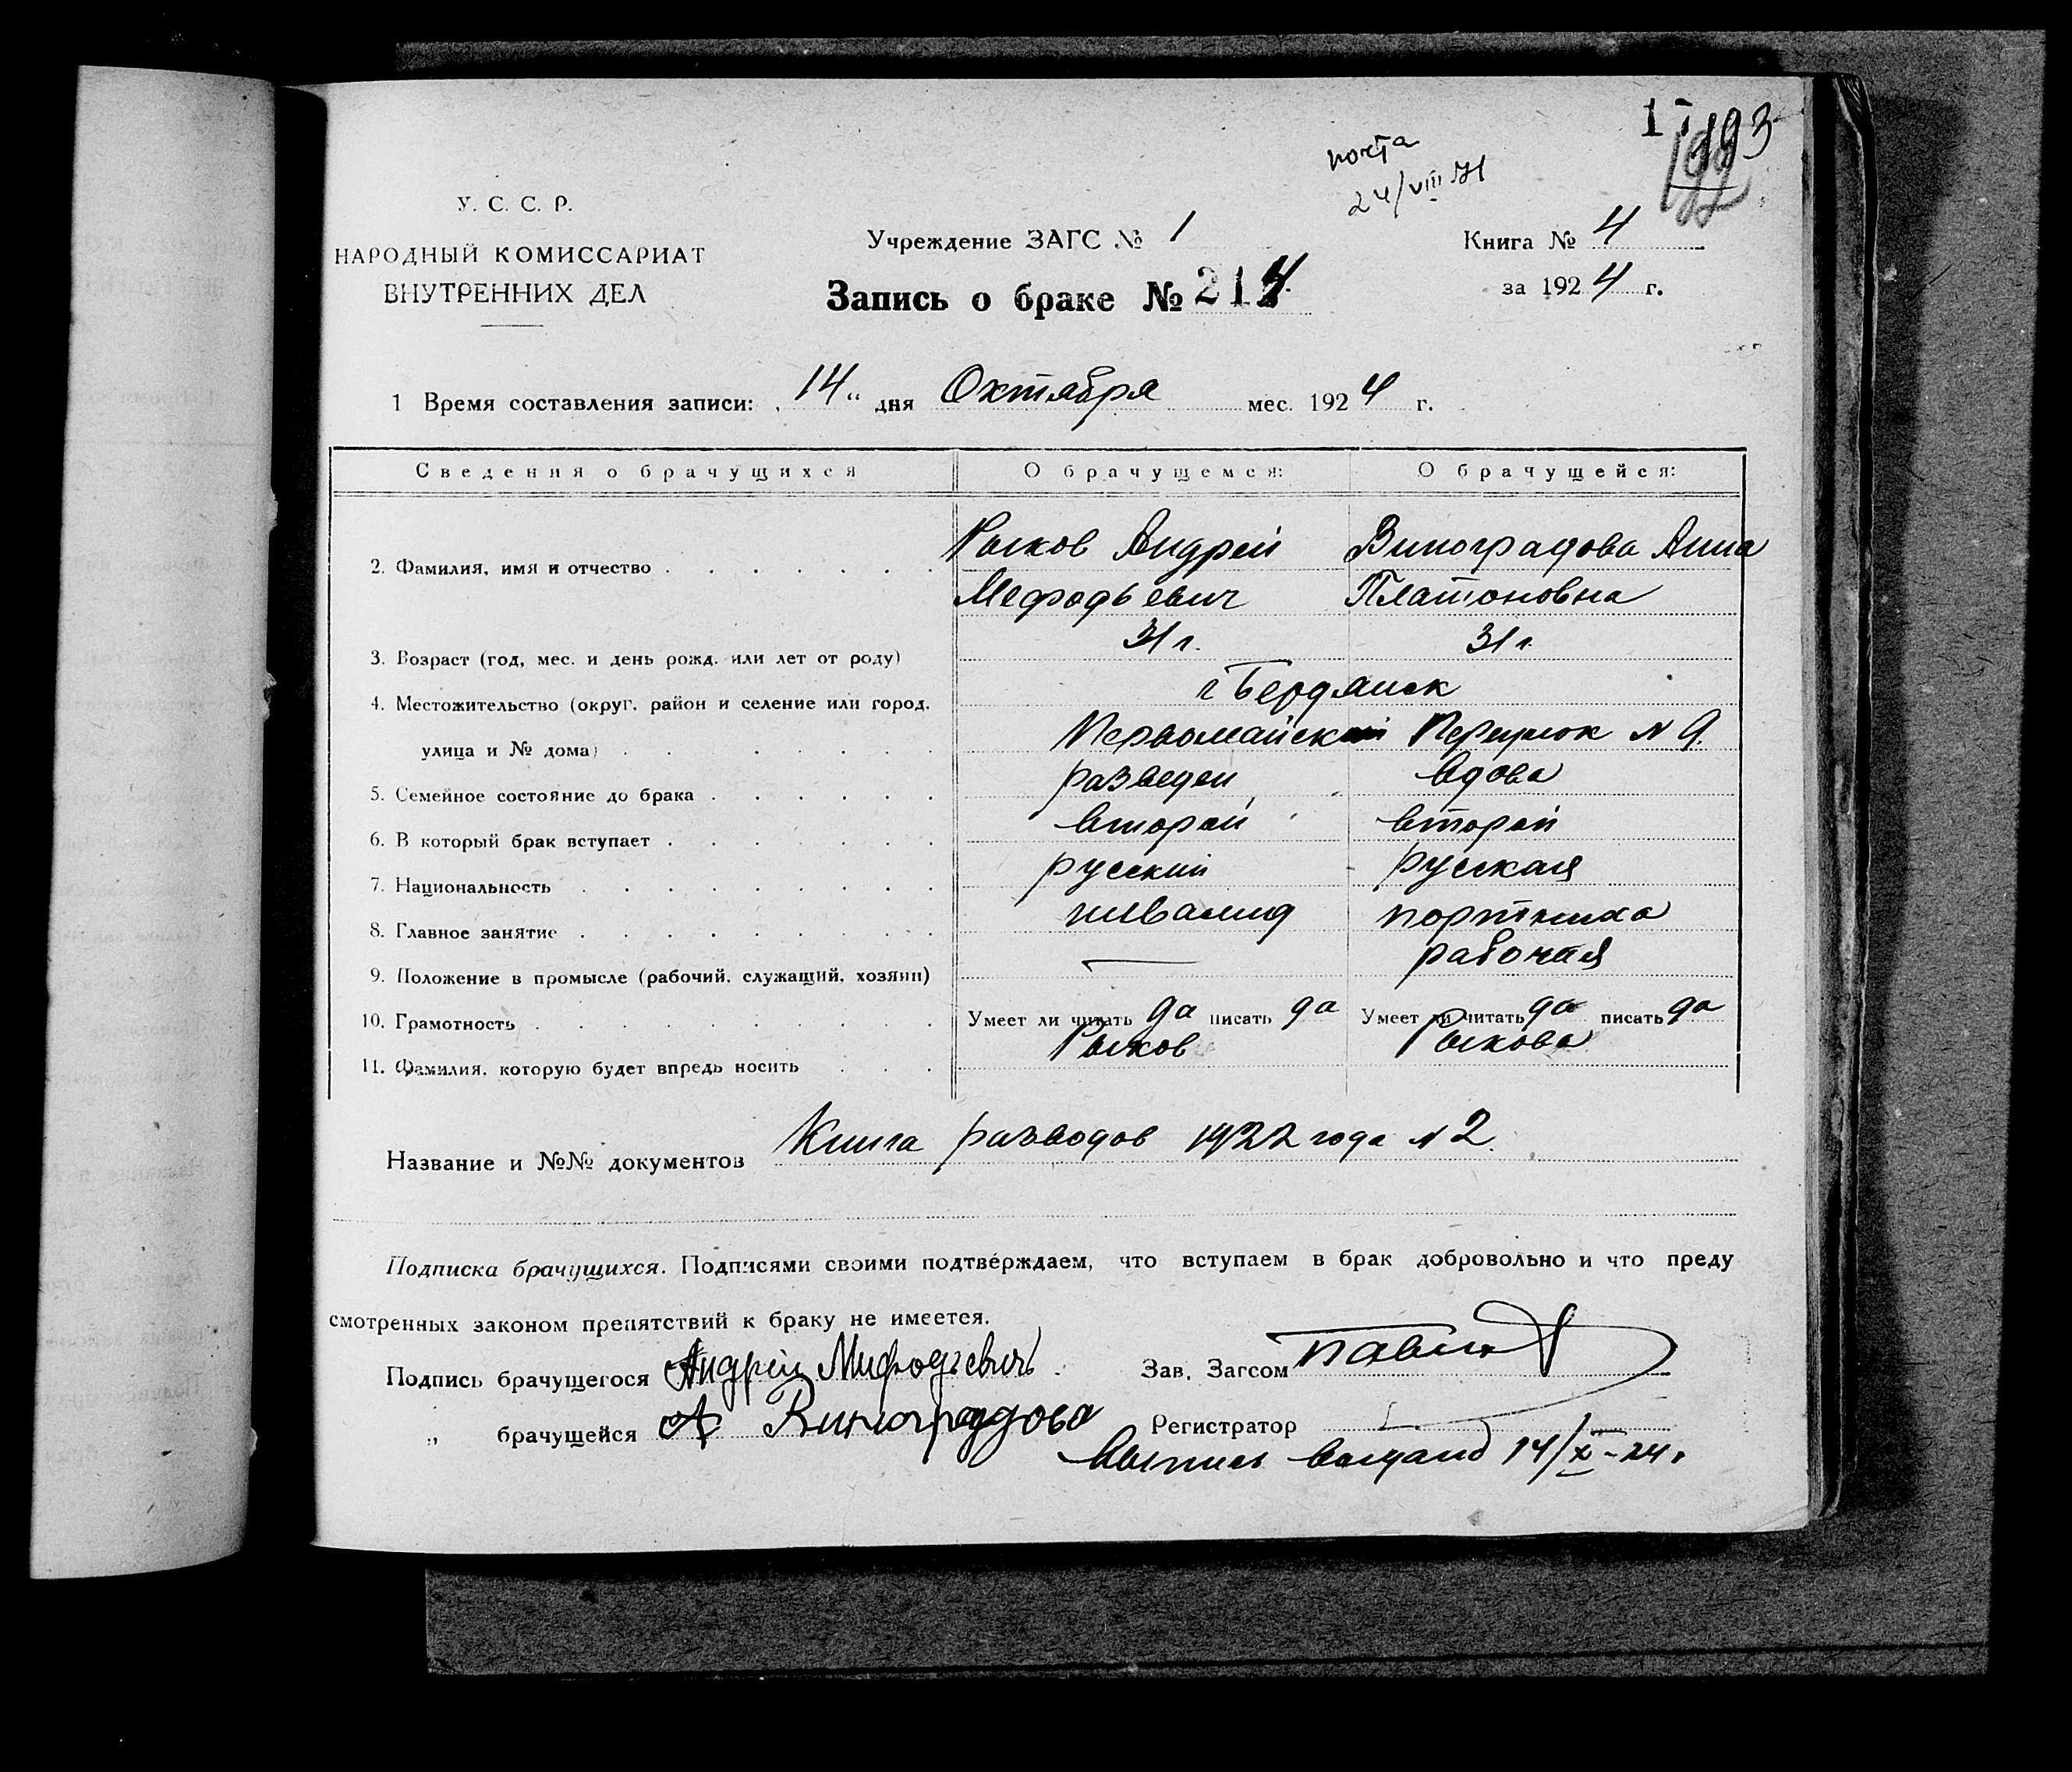 193
почта
24/VIII 71
У. С. С. Р.
НАРОДНЫЙ КОМИССАРИАТ
ВНУТРЕННИХ ДЕЛ
Учреждение ЗАГС № 1
Запись о браке № 214
Книга № 4
за 1924 г.
1 Время составления записи: 14 " дня Октября мес. 1924 г.
Сведения о брачущихся О брачущемся: О брачущейся:
2. Фамилия, имя и отчество Рыков Андрей Виноградова Анна
Мефодьевич Платоновна
3. Возраст (год, мес. и день рожд. или лет от роду) 31 г. 31 г.
4. Местожительство (округ, район и селение или город, г Бердянск
улица и № дома) Первомайский Переулок N 9.
5. Семейное состояние до брака разведен вдова
6. В который брак вступает второй второй
7. Национальность русский русская
8. Главное занятие инвалид портниха
9. Положение в промысле (рабочий, служащий, хозяин) — рабочая
10. Грамотность Умеет ли читать да писать да Умеет ли читать да писать да
11. Фамилия, которую будет впредь носить Рыков Рыкова
Название и №№ документов Книга разводов 1922 года N 2.
Подписка брачущихся. Подписями своими подтверждаем, что вступаем в брак добровольно и что преду
смотренных законом препятствий к браку не имеется.
Подпись брачущегося Андрей Мифодьевичь Зав. Загсом
" брачущейся А Виноградова Регистратор
Выпись выдана 14/X-24.